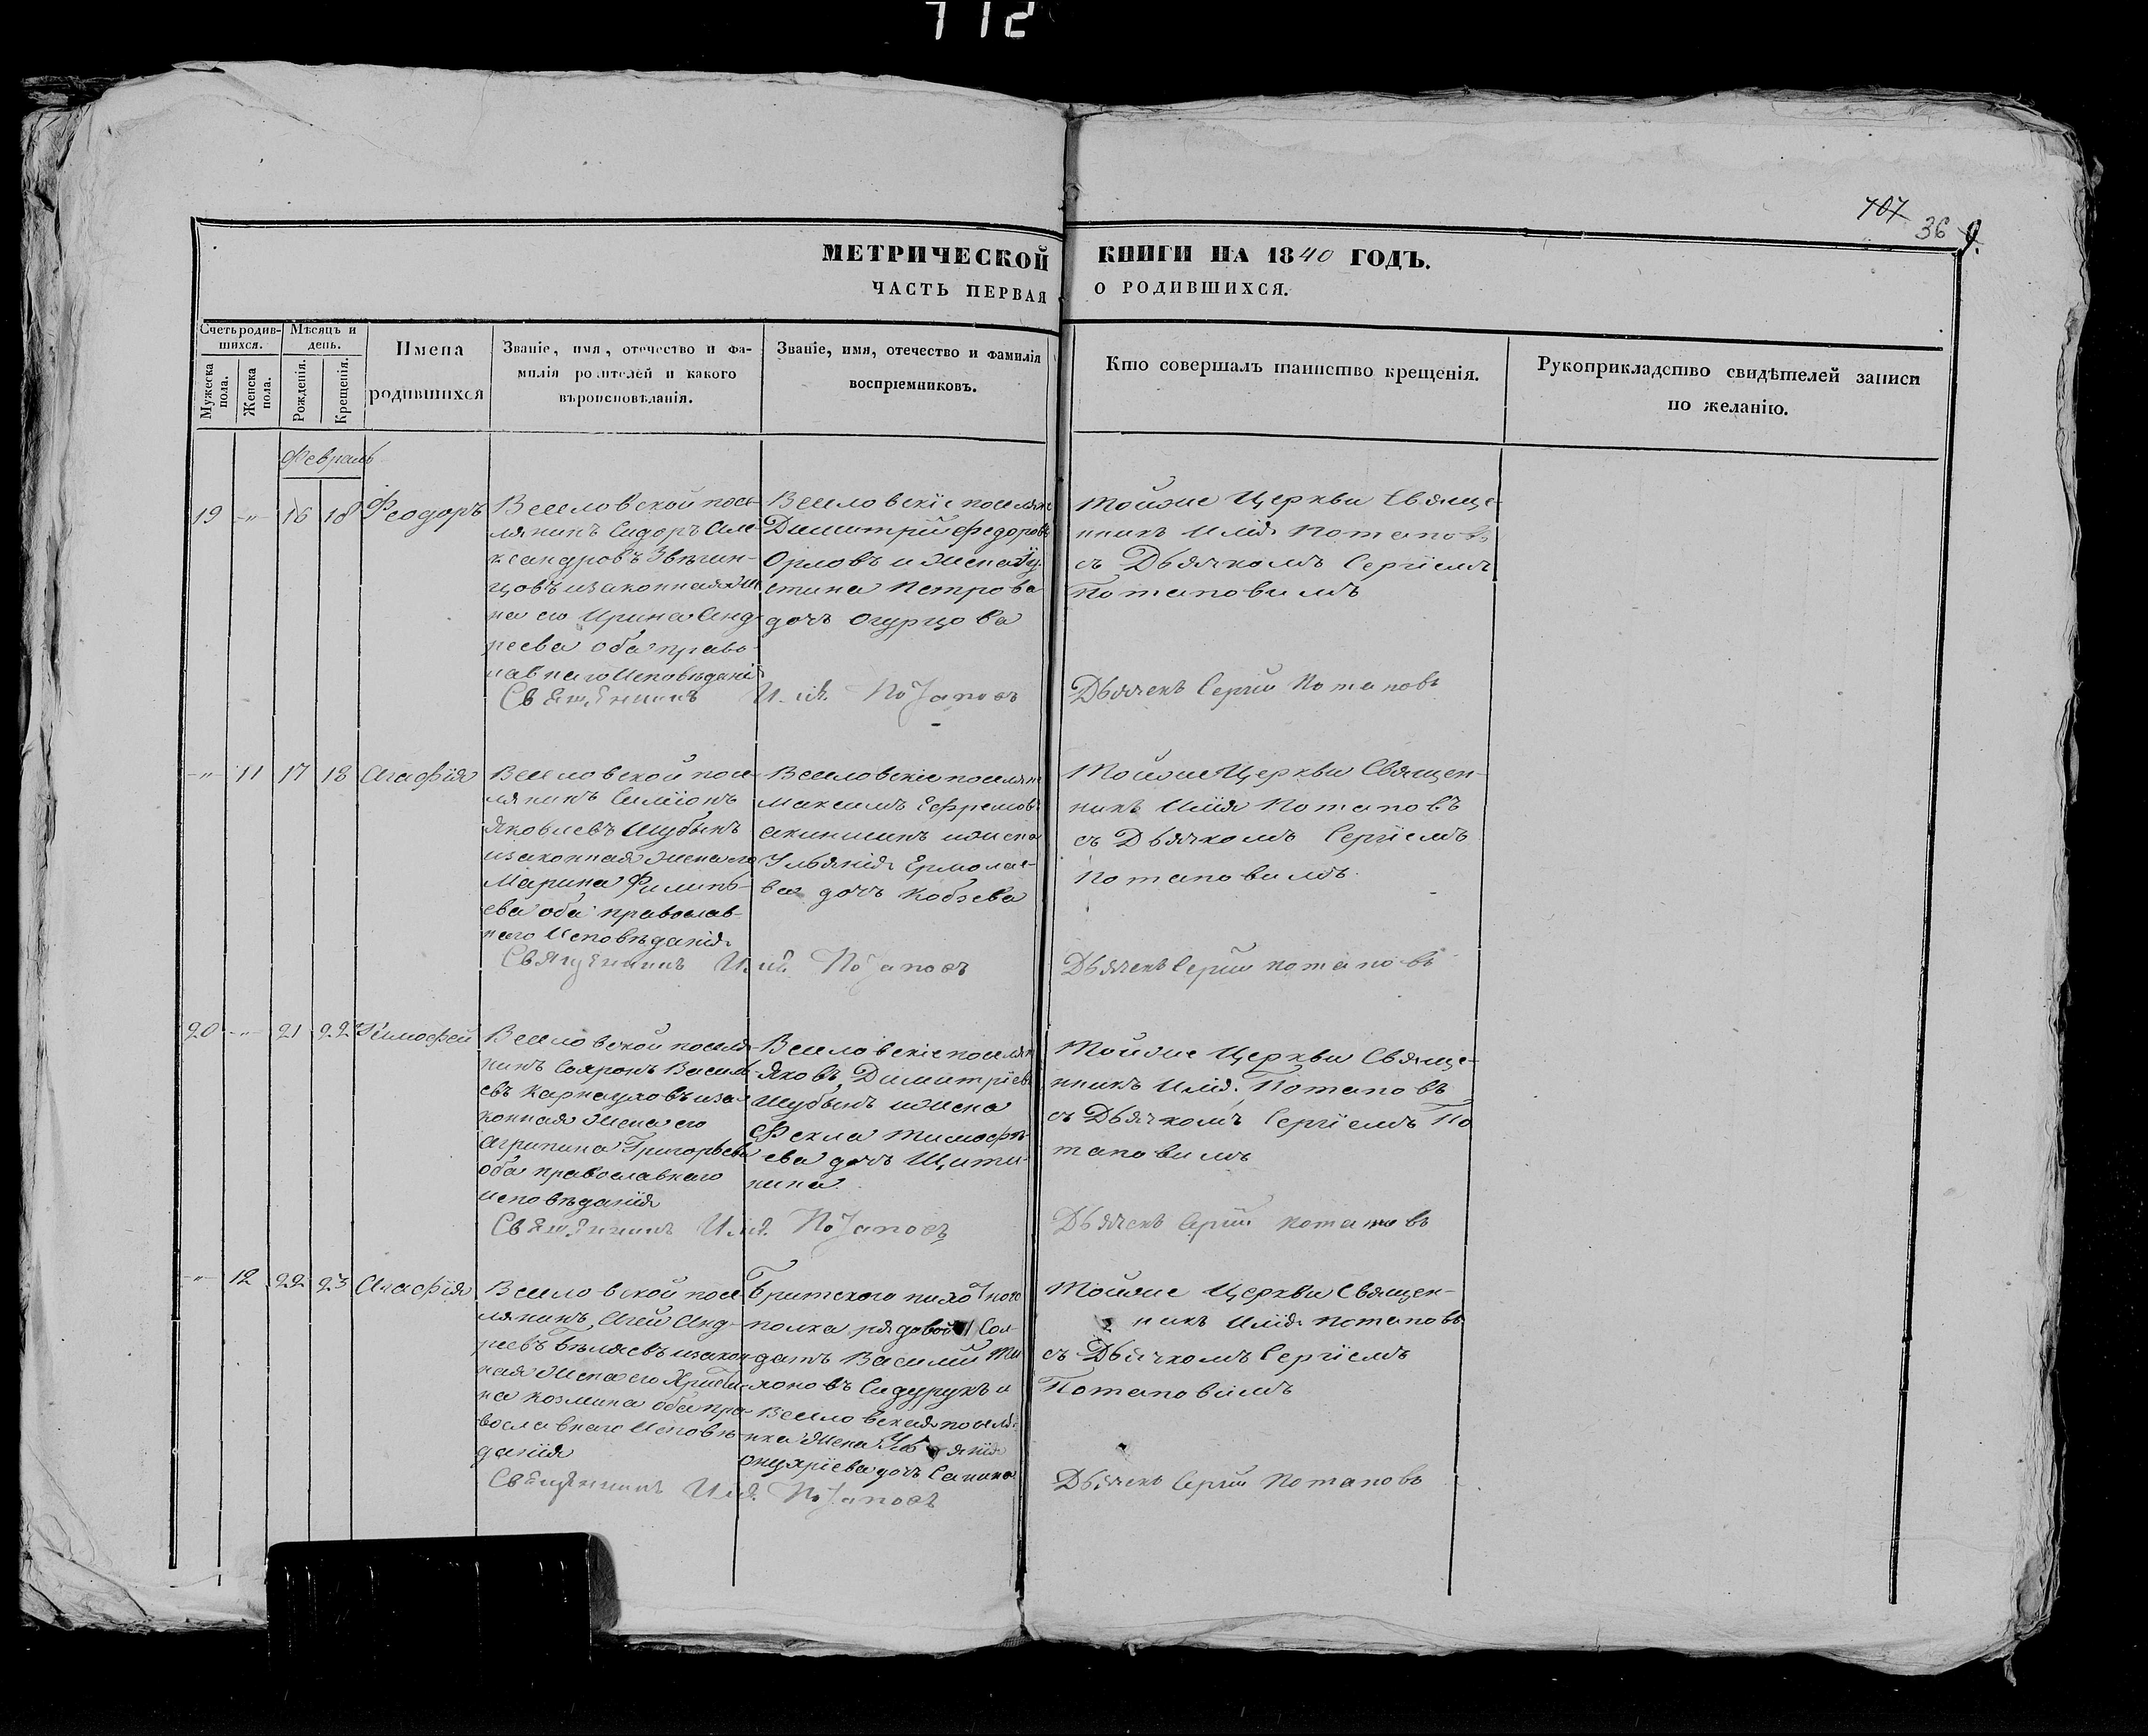 712
707
36
9.
МЕТРИЧЕСКОЙ КНИГИ НА 1840 ГОДЪ.
ЧАСТЬ ПЕРВАЯ О РОДИВШИХСЯ.
Счетъ родив-
шихся.
Мужеска
пола.
Женска
пола.
Мѣсяцъ и
день.
Рожденія.
Крещенія.
Имена
родившихся
Званіе, имя, отечество и фа-
милія родителей и какого
вѣроисповѣданія.
Званіе, имя, отечество и фамилія
воспріемниковъ.
Кто совершалъ таинство крещенія.
Рукоприкладство свидѣтелей записи
по желанію.
Февраль
19 -"- 16 18 Феодоръ
Веселовской посе-
лянинъ Сидоръ Але-
ксандровъ Звягин-
цовъ изаконная же
на его Ирина Анд-
реева оба право-
славнаго Исповѣданія
Веселовскіе поселяне
Димитрій Федоровъ
Орловъ и жена Іу-
стина Петрова
дочь Огурцова
Тойже Церкви Свяще-
нникъ Илія Потаповъ
съ Дьячкомъ Сергіемъ
Потаповымъ
Священникъ Илія Потаповъ
Дьячекъ Сергій Потаповъ
-"- 11 17 18 Агафія
Веселовской посе-
лянинъ Симіонъ
Яковлевъ Шубынъ
изаконная жена его
Марина Филипь-
ева оба православ-
наго Исповѣданія
Веселовскіе поселяне
Максимъ Ефремовъ
Акиншинъ ижена
Ульянія Ермолае-
ва дочь Кобзева
Тойже Церкви Священ-
никъ Илія Потаповъ
съ Дьячкомъ Сергіемъ
Потаповымъ
Священникъ Илія Потаповъ
Дьячекъ Сергій Потаповъ
20 -"- 21 22 Тимофей
Веселовской поселя-
нинъ Васи-
евъ Карнауховъ иза-
конная жена его
Агрипина Григорьева
оба православнаго
Исповѣданія
Веселовскіе поселян
Яковъ Димитріевъ
Шубынъ ижена
Фекла Тимофѣ-
ева дочь Щити-
нина
Тойже Церкви Свяще-
нникъ Илія Потаповъ
съ Дьячкомъ Сергіемъ По
таповымъ
Священникъ Илія Потаповъ
Дьячекъ Сергій Потаповъ
-"- 12 22 23 Агафія
Веселовской посе
лянинъ Агей Анд-
реевъ Бѣляевъ изакон-
ная жена его Христи-
на Козмина оба пра-
вославнаго Исповѣ-
данія
пихотного
полка рядовой Сол-
датъ Василий Ти
хоновъ и
Веселовская поселя-
нка жена
дочь Санина
Тойже Церкви Священ-
никъ Илія Потаповъ
съ Дьячкомъ Сергіемъ
Потаповымъ
Священникъ Илія Потаповъ
Дьячекъ Сергій Потаповъ